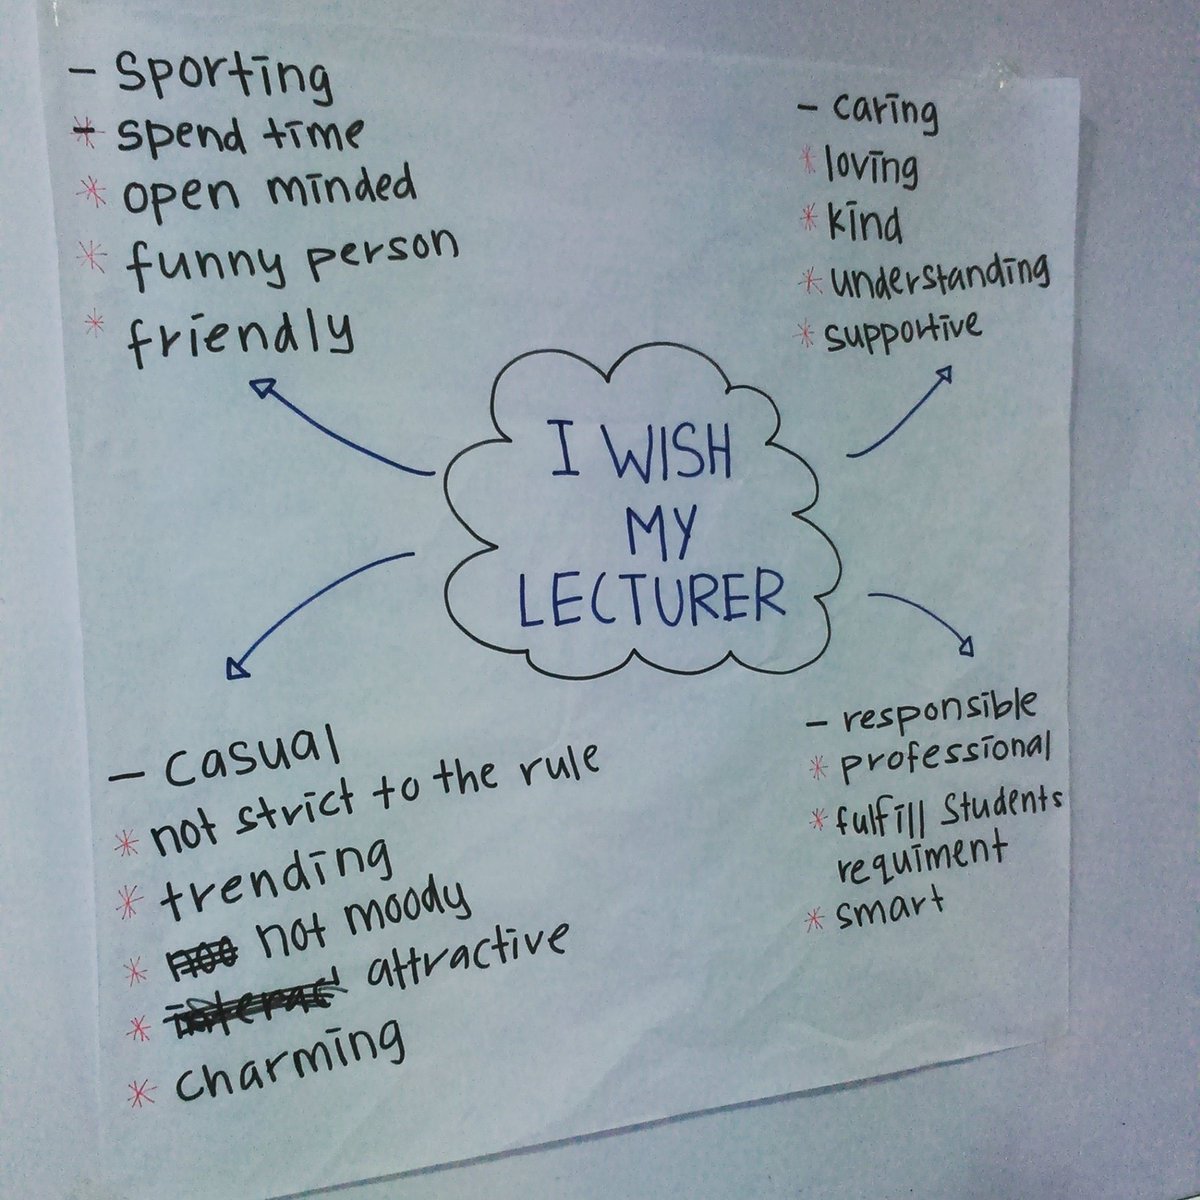 - Sporting
* spend time
* open minded
* funny person
* friendly
- caring
* loving
* kind
* understanding
* supportive
I WISH
MY
LECTURER
- casual
* not strict to the rule
* trending
* not moody
* attractive
* charming
- responsible
* professional
* fulfill students
requiment
* smart